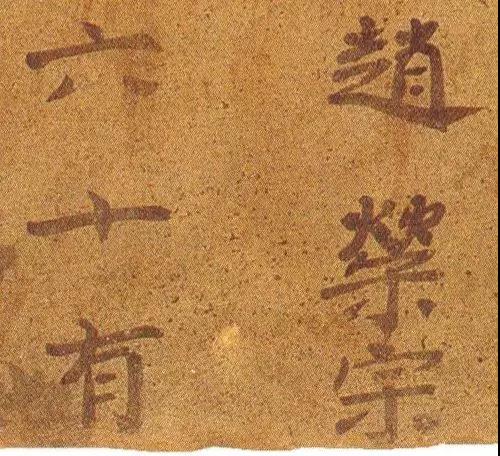 趙榮宗
六十有